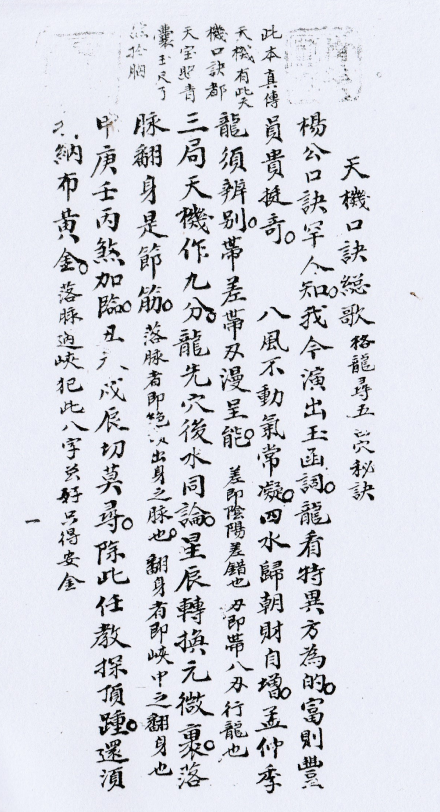 天機口訣総歌 格龍尋五穴秘訣
楊公口訣罕人知我今演出玉函詞龍看特異方為的富則豐
員貴挺奇 八風不動氣常凝四水歸朝財自增孟仲季
龍須辨别帶差帶刃漫呈能 差即陰陽差錯也 刃即帶八刃行龍也
三局天機作九分龍先穴後水同論星辰轉換元微裏落
脉翻身是節筋 落脉者即出身之脉也 翻身者即峽中之翻身也
甲庚壬丙煞加臨丑戌辰切莫尋除此任教探頂踵還須
納布黃金 落脉過峽犯此八字芸好只得安金
此本真傳
天機有此天
機口訣都
天宝照青
囊玉尺了
一